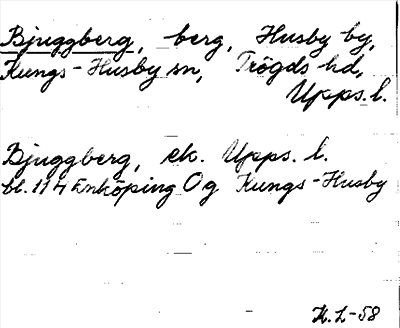 Bjuggberg, berg, Husby by,
Kungs-Husby sn, Trögds hd,
Upps. l.
Bjuggberg, ek. Upps. l.
bl. 114 Enköping Og Kungs-Husby
H. L-58